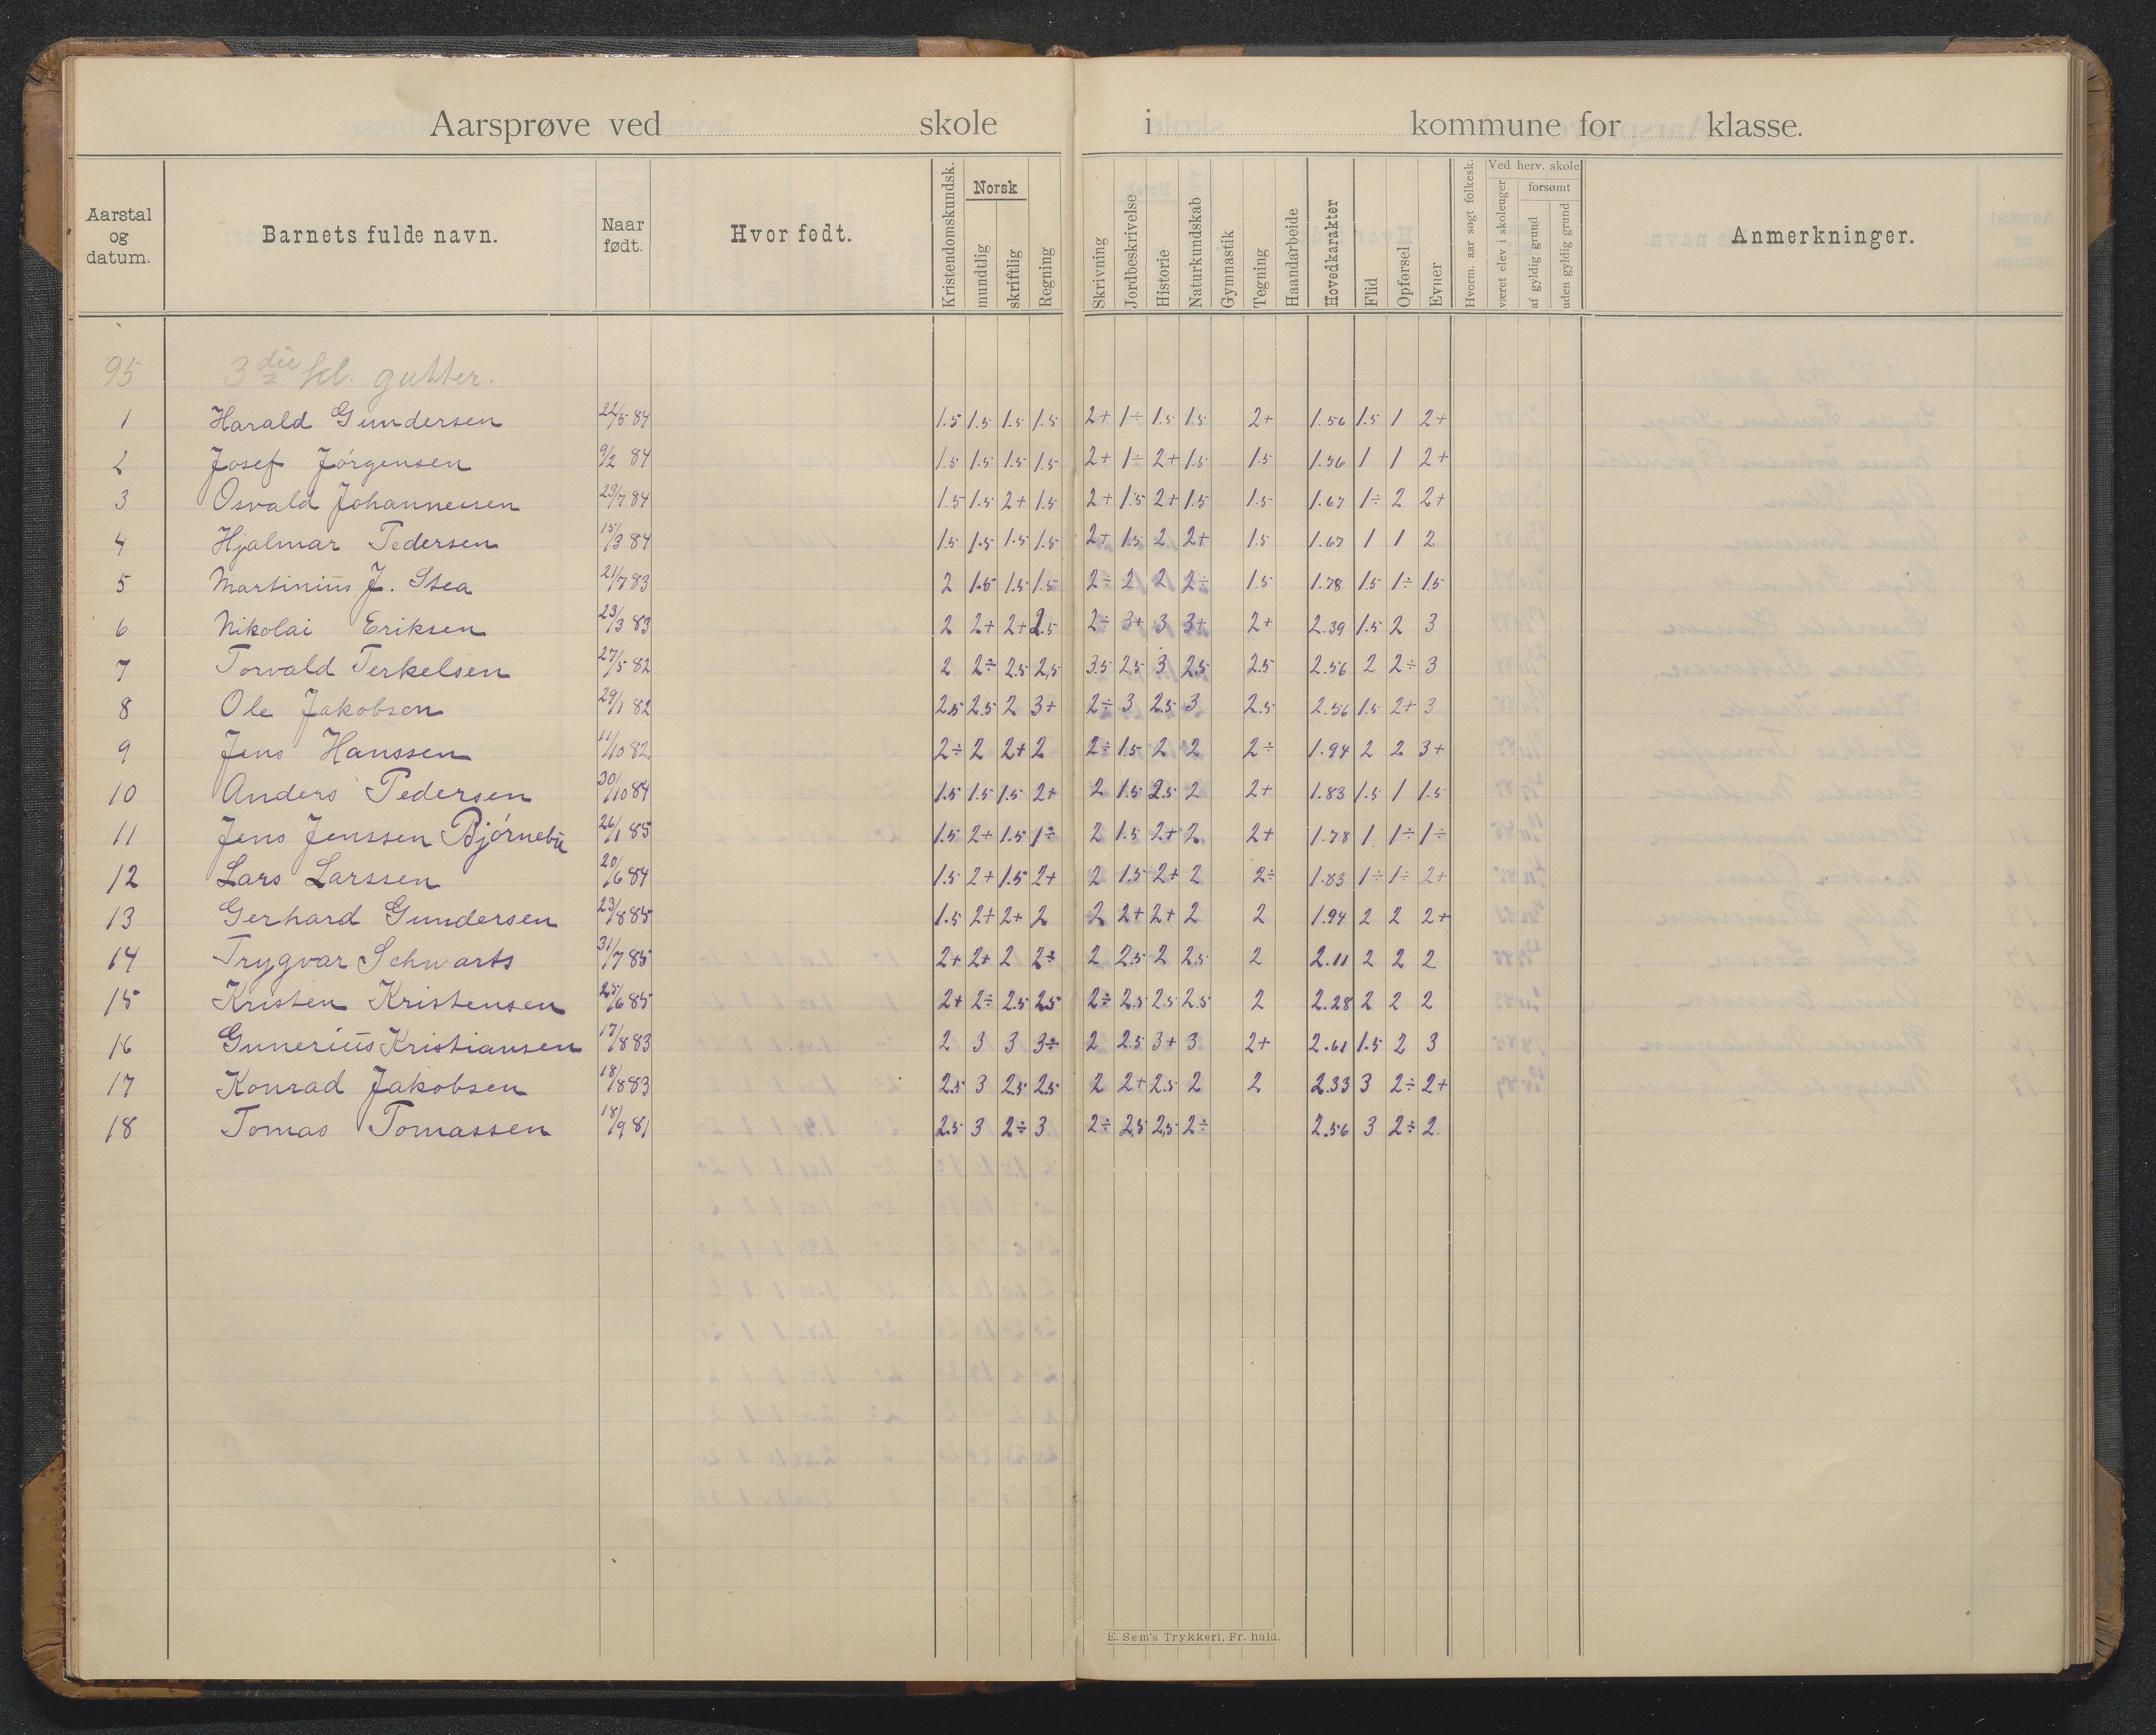 Aarsprøve ved skole i kommune for klasse.
Aarstal og datum. Barnets fulde navn. Naar født. Hvor født. Kristendomskundsk. Norsk mundtlig skriftlig Regning Skrivning Jordbeskrivelse Historie Naturkundskab Gymnastik Tegning Haandarbeide Hovedkarakter Flid Opførsel Evner Hvorm. aar søgt folkesk. Ved herv. skole været elev i skoleuger forsømt af gyldig grund uden gyldig grund Anmerkninger.
95 3die kl. gutter.
1 Harald Gundersen 22/5 84 1.5 1.5 1.5 1.5 2+ 1÷ 1.5 1.5 2+ 1.56 1.5 1 2+
2 Josef Jörgensen 9/2 84 1.5 1.5 1.5 1.5 2+ 1÷ 2+ 1.5 1.5 1.56 1 1 2+
3 Osvald Johannessen 29/7 84 1.5 1.5 2+ 1.5 2+ 1.5 2+ 1.5 1.5 1.67 1÷ 2 2+
4 Hjalmar Pedersen 15/3 84 1.5 1.5 1.5 1.5 2+ 1.5 2 2+ 1.5 1.67 1 1 2
5 Martinius J. Stea 21/7 83 2 1.5 1.5 1.5 2÷ 2 2 2÷ 1.5 1.78 1.5 1÷ 1.5
6 Nikolai Eriksen 23/3 83 2 2+ 2+ 2.5 2÷ 3+ 3 3+ 2+ 2.39 1.5 2 3
7 Torvald Terkelsen 27/5 82 2 2÷ 2.5 2,5 3.5 2,5 3 2.5 2.5 2.56 2 2÷ 3
8 Ole Jakobsen 29/1 82 2.5 2.5 2 3+ 2÷ 3 2.5 3 2.5 2.56 1.5 2+ 3
9 Jens Hanssen 11/10 82 2÷ 2 2+ 2 2÷ 1.5 2 2 2÷ 1.94 2 2 3+
10 Anders Pedersen 30/10 84 1.5 1.5 1.5 2+ 2 1.5 2.5 2 2+ 1.83 1.5 1 1.5
11 Jens Jenssen Bjørnebu 26/1 85 1.5 2+ 1.5 1÷ 2 1.5 2+ 2 2+ 1.78 1 1÷ 1÷
12 Lars Larssen 20/6 84 1.5 2+ 1.5 2+ 2 1.5 2+ 2 2÷ 1.83 1÷ 1÷ 2+
13 Gerhard Gundersen 23/8 85 1.5 2+ 2+ 2 2 2+ 2+ 2 2 1.94 2 2 2+
14 Trygvar Schwarts 31/7 85 2+ 2+ 2 2÷ 2 2.5 2 2.5 2 2.11 2 2 2
15 Kristen Kristensen 25/6 85 2+ 2÷ 2.5 2.5 2÷ 2.5 2.5 2.5 2 2.28 2 2 2
16 Gunerius Kristiansen 17/8 83 2 3 3 3÷ 2 2.5 3+ 3 2+ 2.61 1.5 2 3
17 Konrad Jakobsen 18/8 83 2.5 3 2.5 2.5 2 2+ 2.5 2 2 2.33 3 2÷ 2+
18 Tomas Tomassen 18/9 81 2.5 3 2÷ 3 2÷ 2,5 2,5 2÷ 2.56 3 2÷ 2
E. Sem's Trykkeri, Fr. hald.